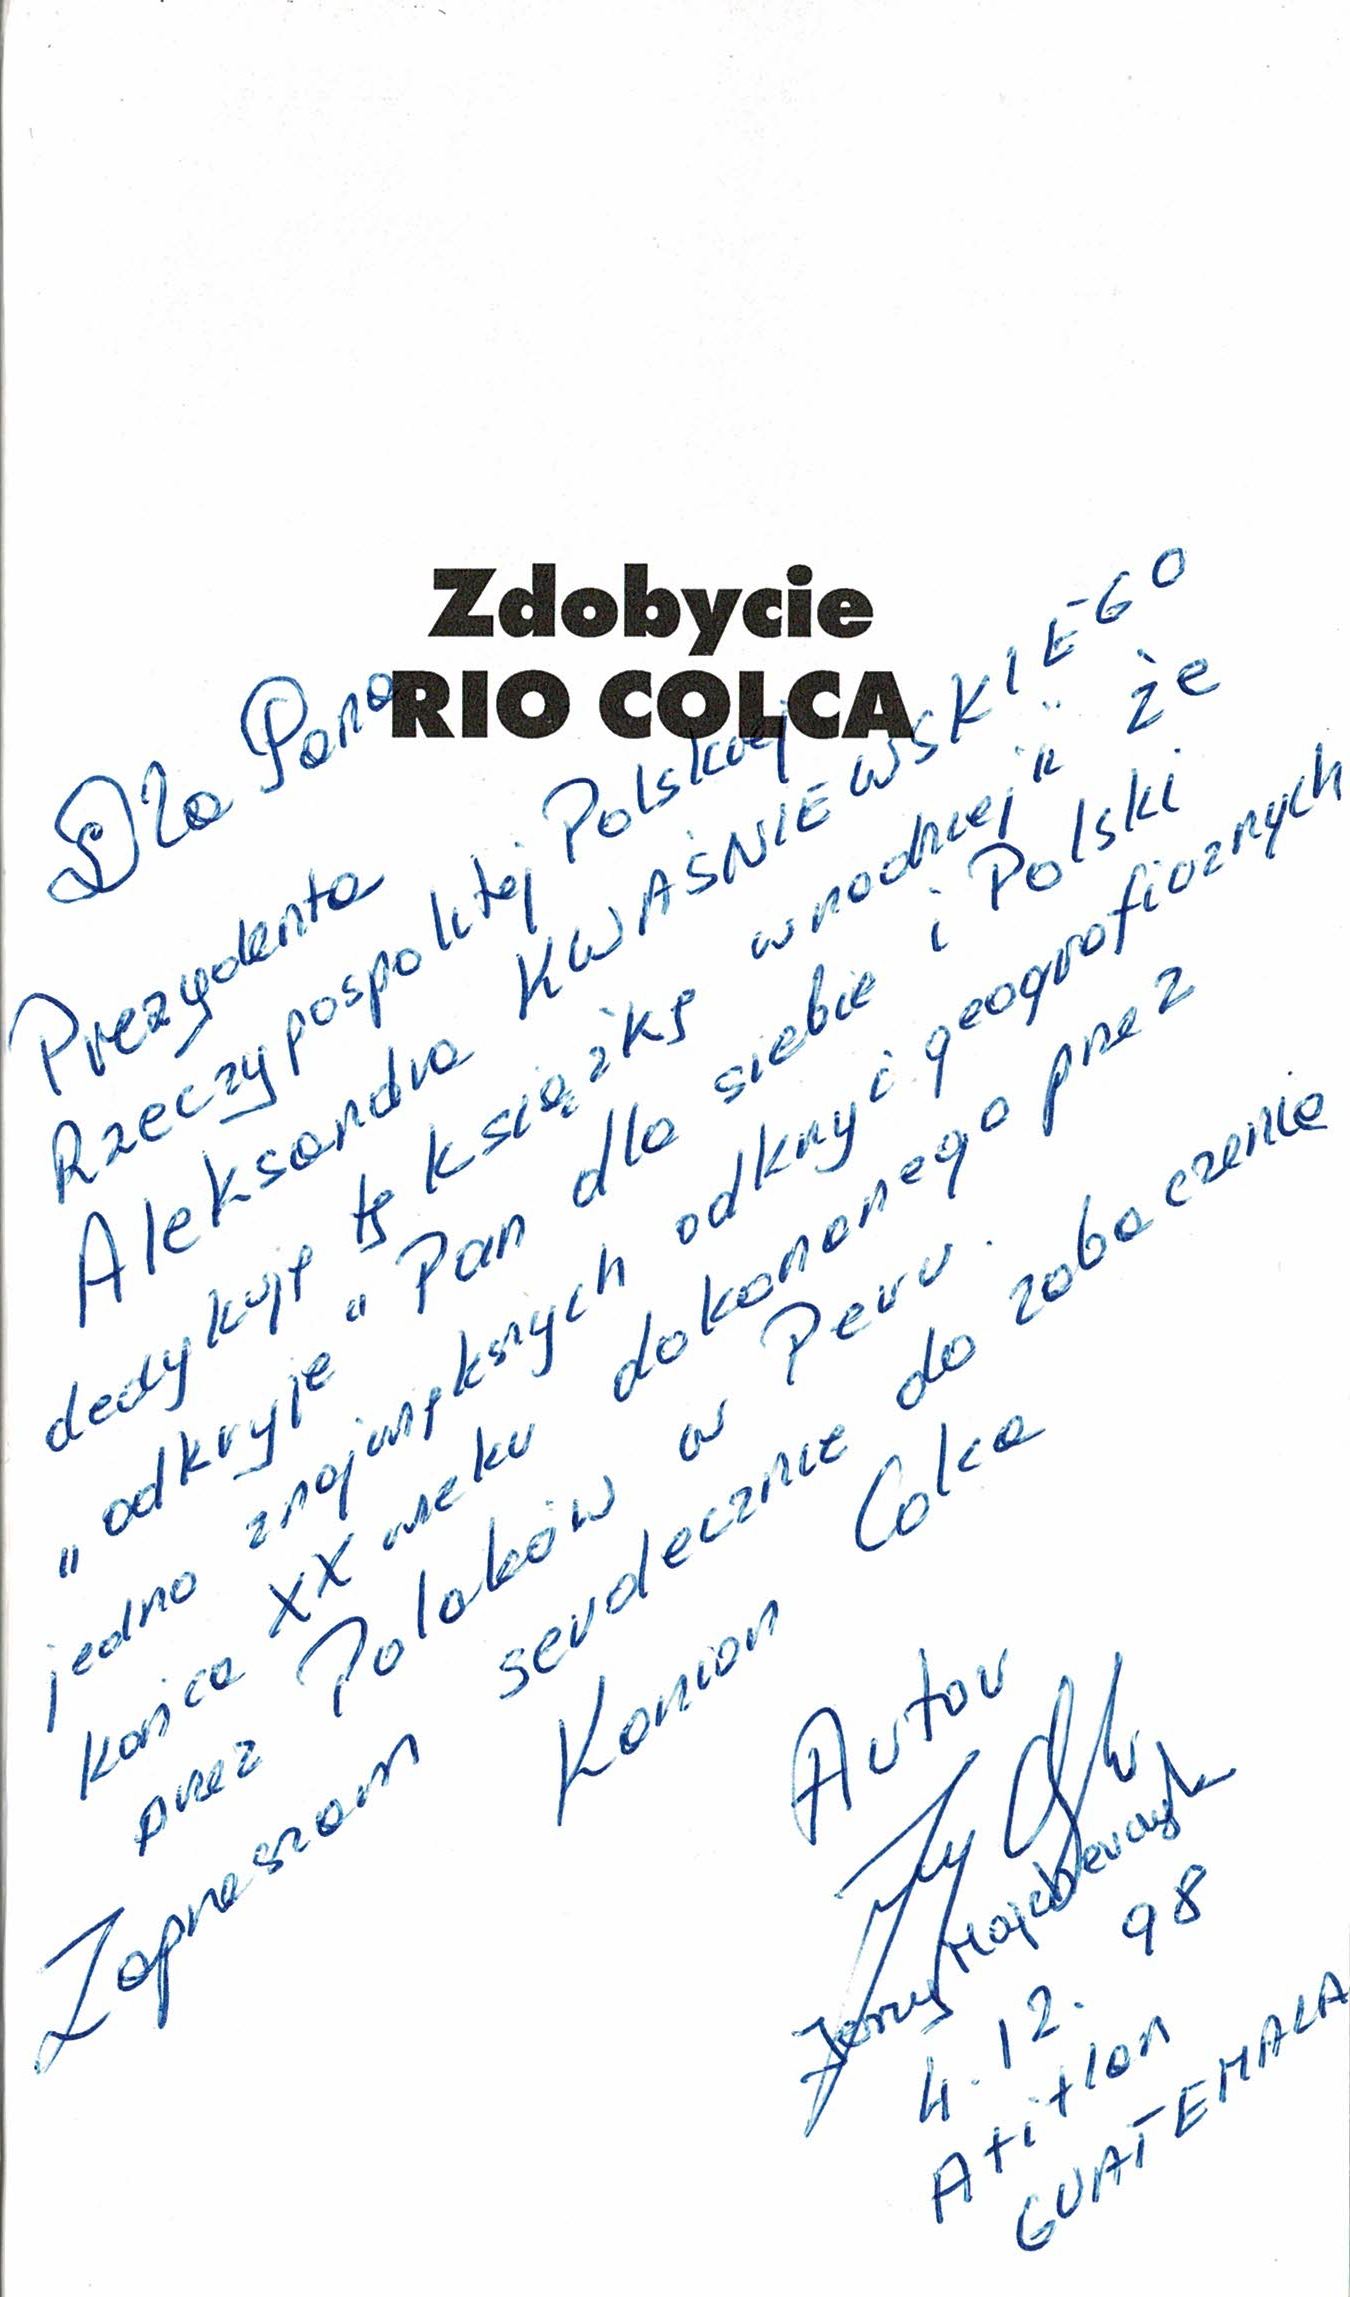 Zdobycie
RIO COLCA
Dla Pana
Prezydenta
Rzeczypospolitej Polskiej
Aleksandra KWAŚNIEWSKIEGO
dedykuję tę książkę w nadziei że
"odkryje" Pan dla siebie i Polski
jedno z największych odkryć geograficznych
końca XX wieku dokonanego przez
przez Polaków w Peru.
Zapraszam serdecznie do zobaczenia
Kanion Colca
Autor
Jerzy Majcherczyk
4.12.98
Atitlan
GUATEMALA